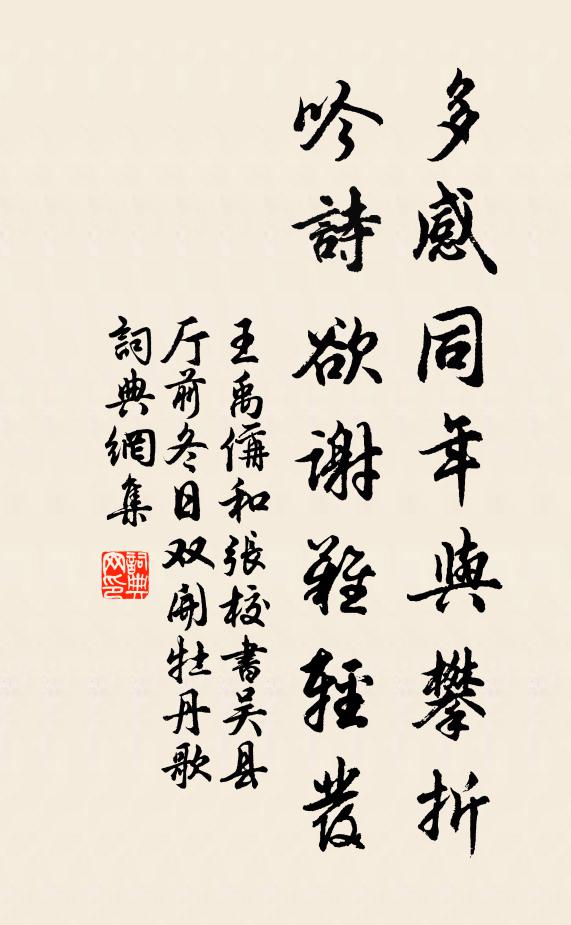 多感同年與攀折
吟詩欲謝難輕發
王禹偁和張校書吴县
厅前冬日双開牡丹歌
詞典網集
詞典网印